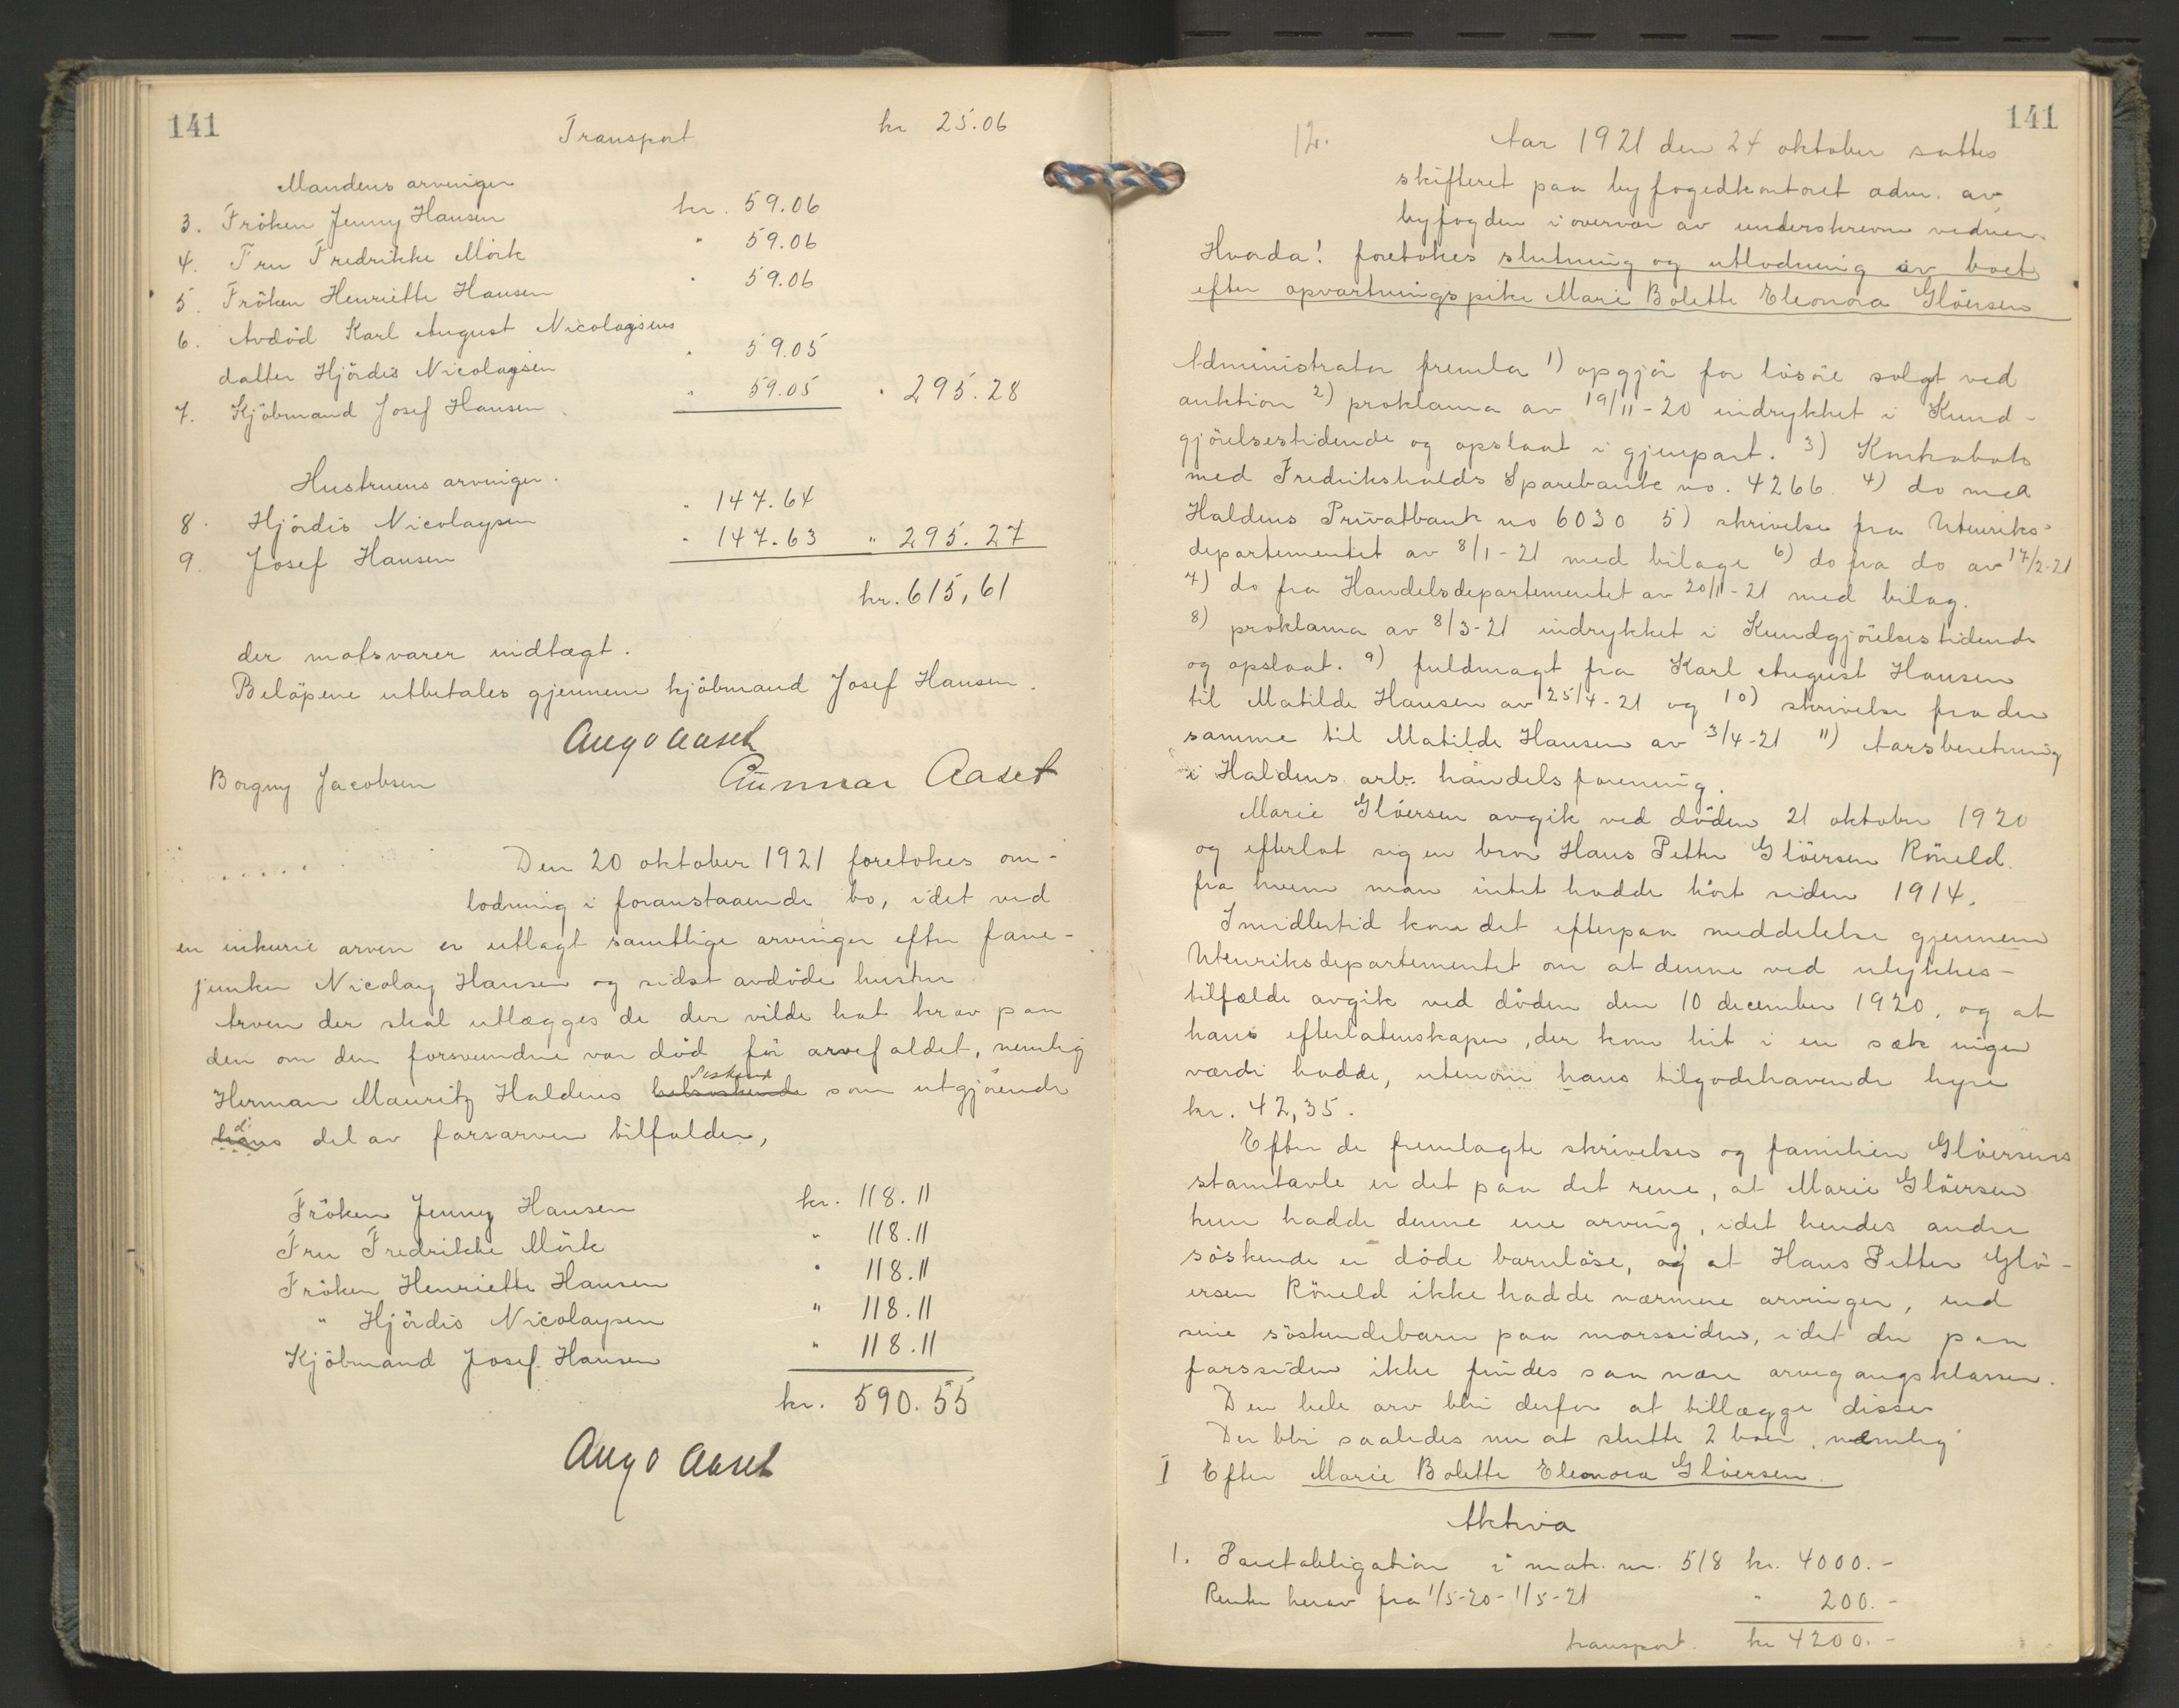 141
Transport kr 25.06
Mandens arvinger
3. Fröken Jenny Hansen kr. 59.06
4. Fru Fredrikke Mörk " 59.06
5. Fröken Henriette Hansen " 59.06
6. Avdöd Karl August Nicolaysens
datter Hjördis Nicolaysen " 59.05
7. Kjöbmand Josef Hansen " 59.05 " 295.28
Hustruens arvinger.
8. Hjördis Nicolaysen " 147.64
9. Josef Hansen " 147.63 " 295.27
kr. 615,61
der motsvarer indtægt.
Belöpene utbetales gjennem kjöbmand Josef Hansen.
Aug O Aaset
Borgny Jacobsen Gunnar Aaset
Den 20 oktober 1921 foretokes om-
lodning i foranstaaende bo, idet ved
en inkurie arven er utlagt samtlige arvinger efter fane-
junker Nicolay Hansen og sidst avdöde hustru.
Arven der skal utlægges de der vilde hat krav paa
den om den forsvundne var död för arvefaldet, nemlig
Herman Mauritz Haldens helsöskende söskend som utgjörende
hans di del av farsarven tilfalder,
Fröken Jenny Hansen kr. 118.11
Fru Fredrikke Mörk " 118.11
Fröken Henriette Hansen " 118.11
" Hjördis Nicolaysen " 118.11
Kjöbmand Josef Hansen " 118.11
kr. 590.55
Aug O Aaset
141
12. Aar 1921 den 24 oktober sattes
skifteret paa byfogedkontoret adm. av
byfogden i overvær av underskrevne vidner.
Hvorda! foretokes slutning og utlodning av boet
efter opvartningspike Marie Bolette Eleonora Glöersen
Administrator fremla 1) opgjör for lösöre solgt ved
auktion 2) proklama av 19/11-20 indrykket i Kund-
gjörelsestidende og opslaat i gjenpart. 3) Kontrabok
med Fredrikshalds Sparebank no. 4266. 4) do med
Haldens Privatbank no 6030 5) skrivelse fra Utenriks-
departementet av 8/1-21 med bilage 6) do fra do av 17/2-21
7) do fra Handelsdepartementet av 20/11-21 med bilag.
8) proklama av 8/3-21 indrykket i Kundgjörelsestidende
og opslaat. 9) fuldmagt fra Karl August Hansen
til Matilde Hansen av 25/4-21 og 10) skrivelse fra den
samme til Matilde Hansen av 3/4-21 11) Aarsberetning
i Haldens arb. handelsforening.
Marie Glöersen avgik ved döden 21 oktober 1920
og efterlot sig en bror Hans Petter Glöersen Röneld.
fra hvem man intet hadde hört siden 1914.
Imidlertid kom det efterpaa meddelelse gjennem
Utenriksdepartementet om at denne ved ulykkes-
tilfælde avgik ved döden den 10 december 1920, og at
hans efterlatenskaper, der kom hit i en sæk ingen
værdi hadde, utenom hans tilgodehavende hyre
kr. 42,35.
Efter de fremlagte skrivelser og familien Glöersens
stamtavle er det paa det rene, at Marie Glöersen
kun hadde denne ene arving, idet hendes andre
söskende er döde barnlöse, og at Hans Petter Glö-
ersen Röneld ikke hadde nærmere arvinger, end
sine söskendebarn paa morssiden, idet der paa
farssiden ikke findes saa nære arvegangsklasser.
Den hele arv blir derfor at tillægge disse.
Der blir saaledes nu at slutte 2 boer, nemlig
I Efter Marie Bolette Eleonora Glöersen.
Aktiva
1. Pantobligation i matr. nr. 518 kr. 4000.-
Renter herav fra 1/5-20-1/5-21 " 200.-
transport. kr 4200.-